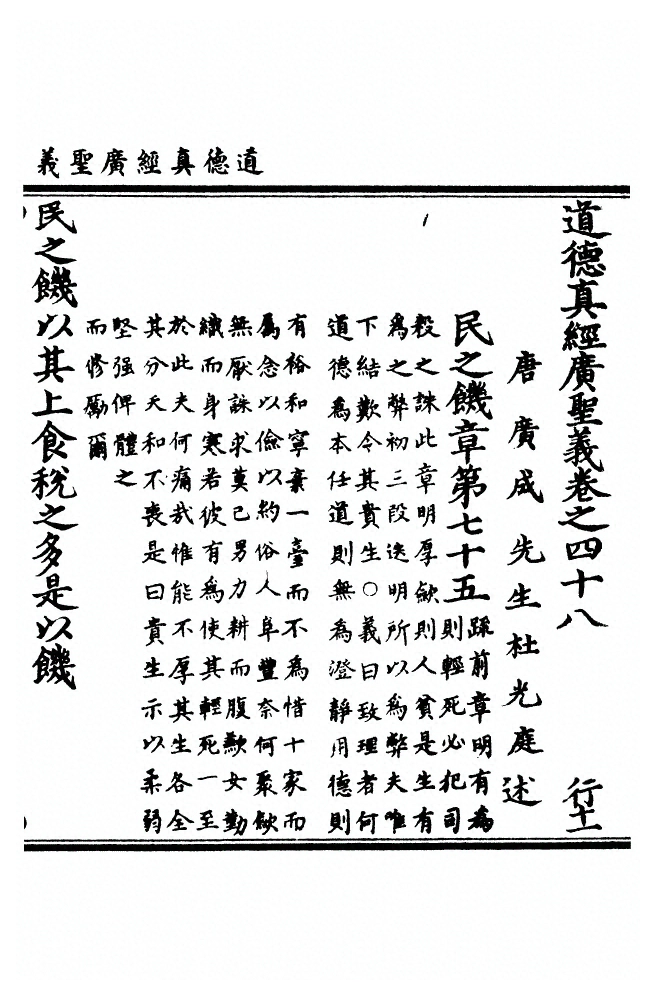 道德真經廣聖義
道德真經廣聖義卷之四十八 行十一
唐廣成先生杜光庭述
民之饑章第七十五
疏前章明有為
則輕死必犯司
殺之誅此章明厚歛則人貧是生有
為之弊初三段迭明所以為弊夫唯
下結歎令其貴生○義曰致理者何
道德為本任道則無為澄靜用德則
有裕和寧棄一臺而不為惜十家而
屬念以儉以約俗人阜豐奈何聚歛
無厭誅求莫已男力耕而腹歉女勤
織而身寒若彼有為使其輕死一至
於此夫何痛哉惟能不厚其生各全
其分天和不喪是曰貴生示以柔弱
堅强俾體之
而修勵爾
民之饑以其上食稅之多是以饑